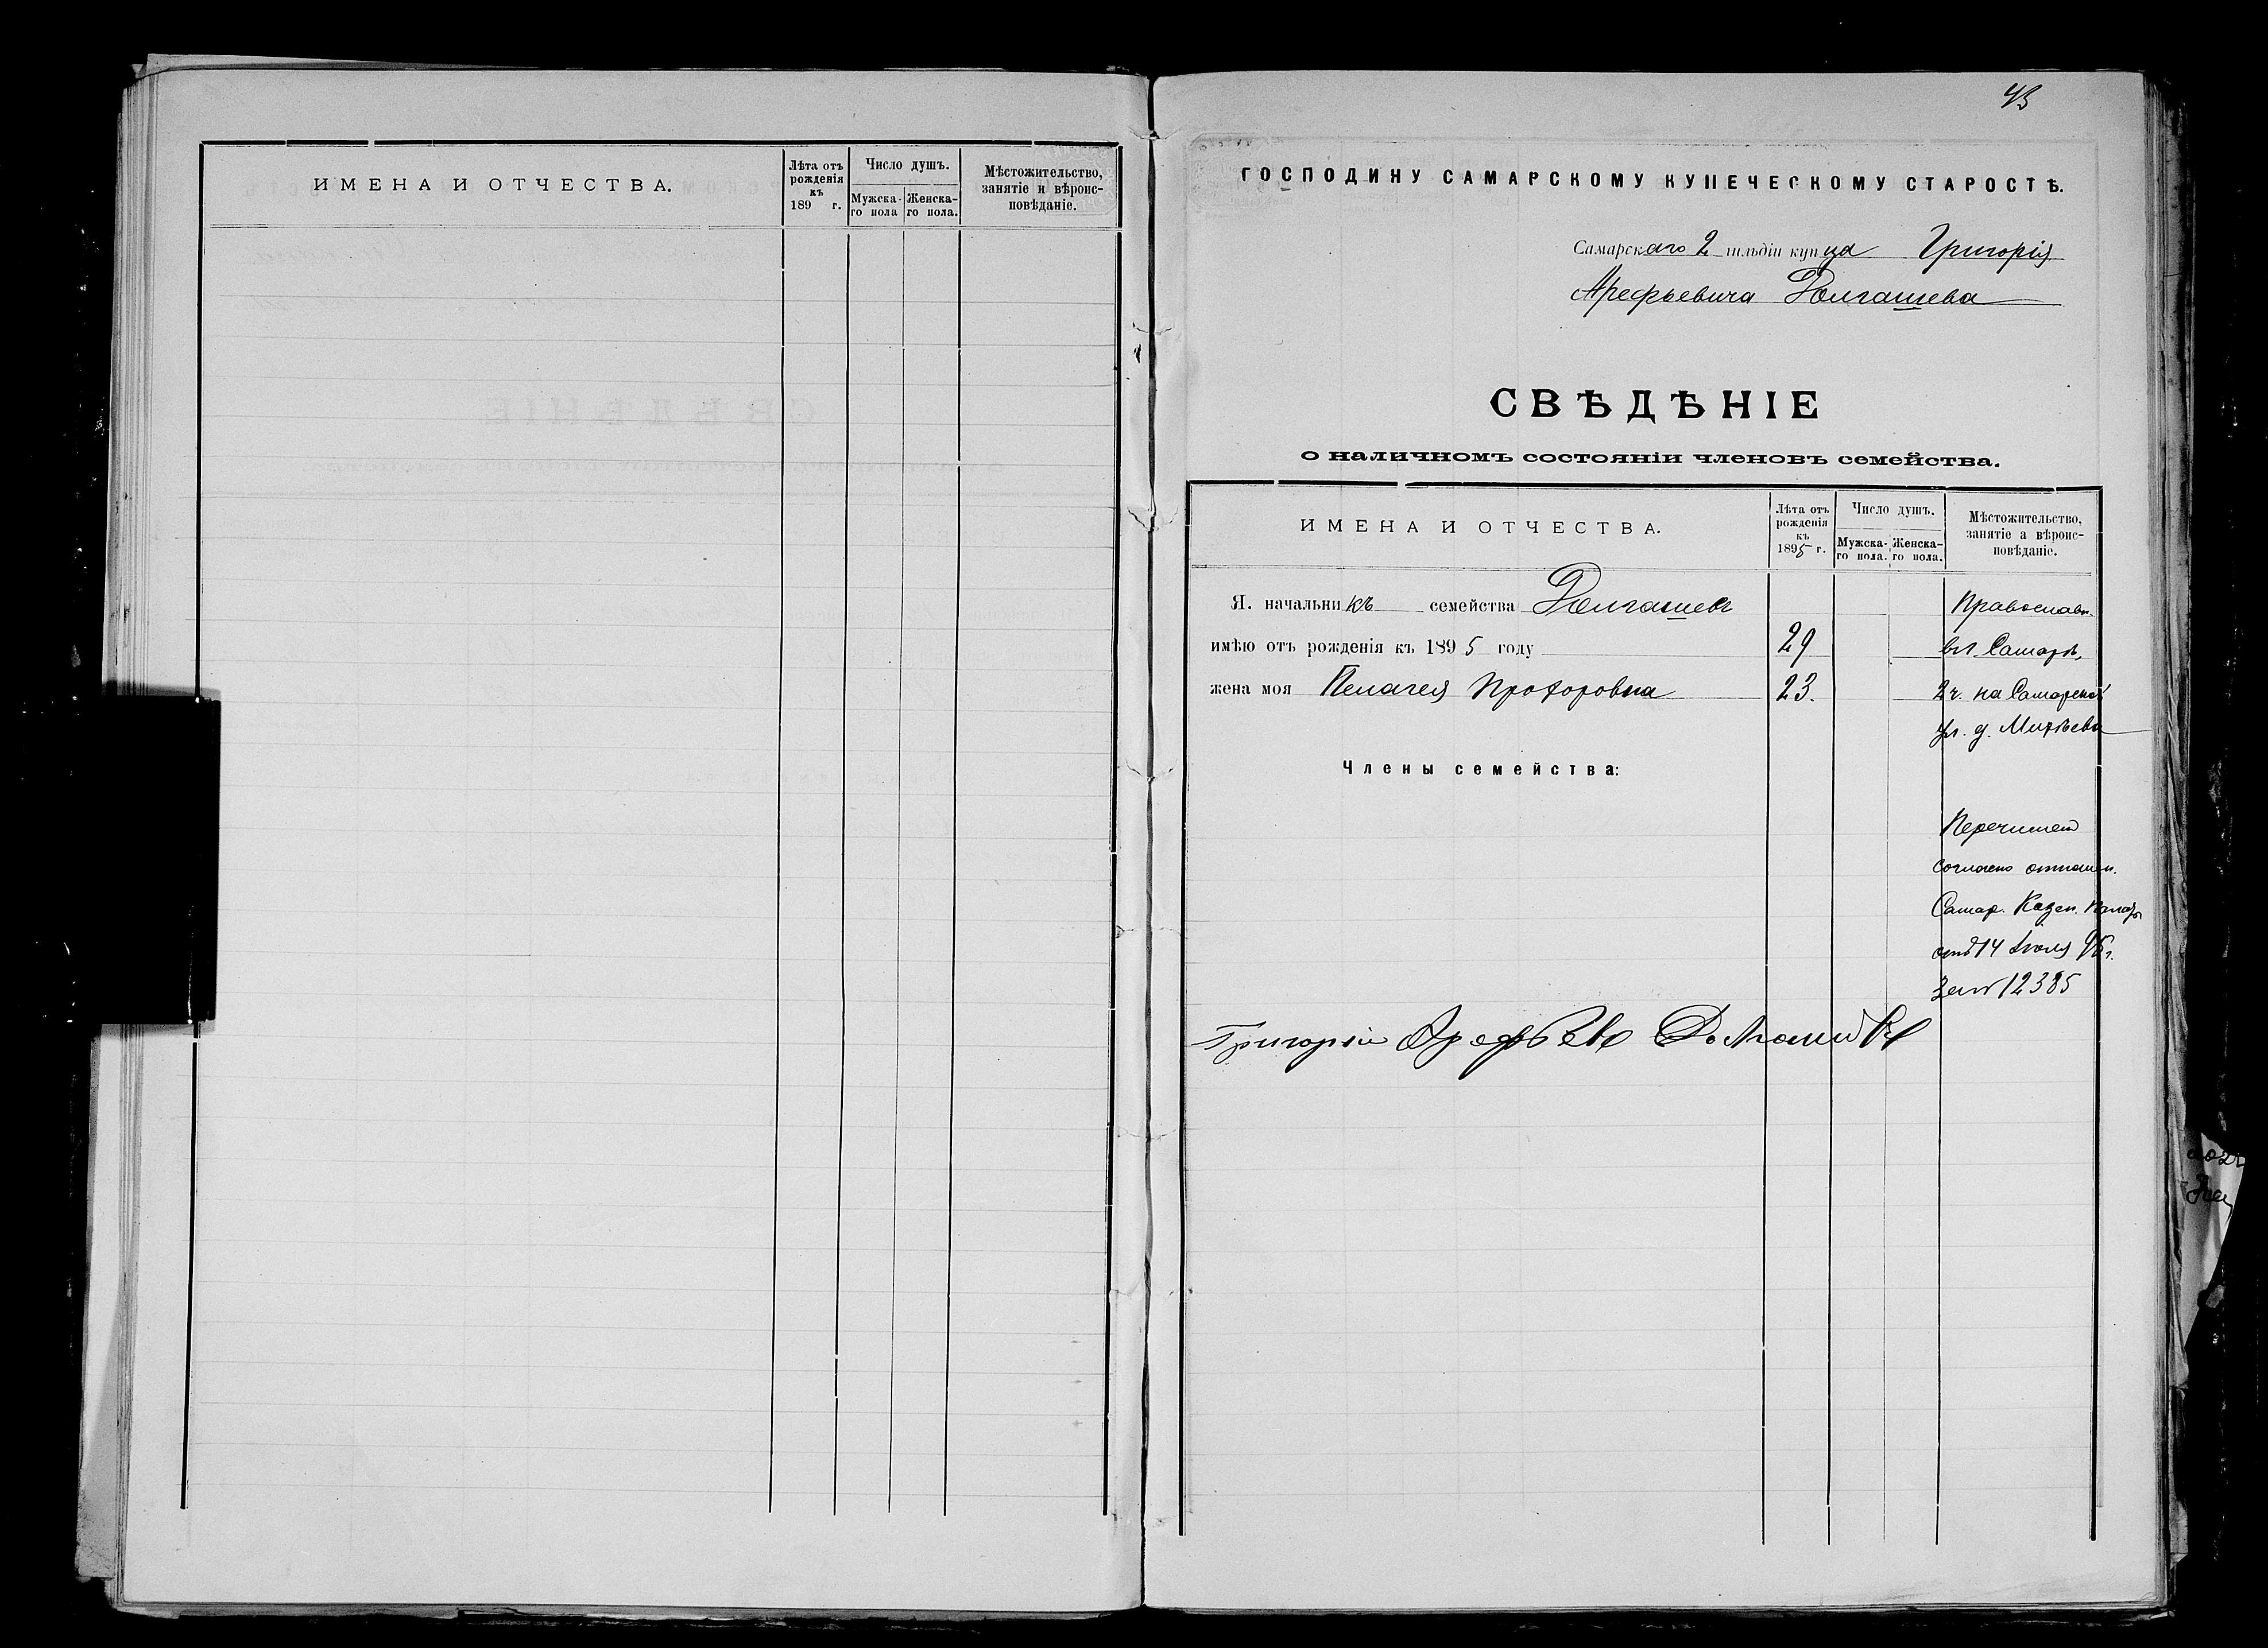 ИМЕНА И ОТЧЕСТВА.
Лѣта отъ рожденія къ 189 г.
Число душъ.
Мужска-го пола
Женска-го пола.
Мѣстожительство, занятіе и вѣроис-повѣданіе.
43
ГОСПОДИНУ САМАРСКОМУ КУПЕЧЕСКОМУ СТАРОСТѢ.
Самарскаго 2 гильдіи купца Григорія
Арефьевича Долгашева
СВѢДѢНІЕ
о наличномъ состояніи членовъ семейства.
ИМЕНА И ОТЧЕСТВА.
Лѣта отъ рожденія къ 1895 г.
Число душъ.
Мужска-го пола.
Женска-го пола.
Мѣстожительство, занятіе а вѣроис-повѣданіе.
Я. начальникъ семейства Долгашев Православн.
имѣю отъ рожденія къ 1895 году 29 вг. Самарѣ,
жена моя Пелагея Прохоровна 23. 2 ч. на Самарской
ул. д.
Члены семейства:
Перечислен
согласно отношен.
Самар. Казен. Палаты
отъ 14 Іюля 95 г.
за № 12385
Григорій Арефьевъ Долгашевъ